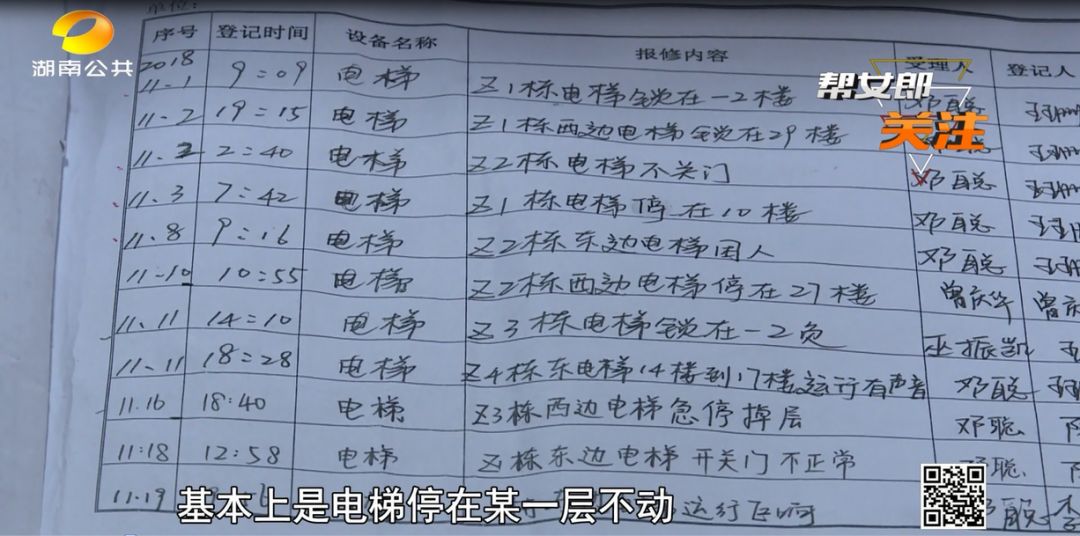 单位：
湖南公共
序号 登记时间 设备名称 报修内容 受理人 登记人
帮女郎
关注
2018
11.1 9:09 电梯 Z1栋电梯锁在-2楼 邓聪
11.2 19:15 电梯 Z1栋西边电梯锁在29楼
11.2 2:40 电梯 Z2栋电梯不关门 邓聪
11.3 7:42 电梯 Z1栋电梯停在10楼 邓聪
11.8 9:16 电梯 Z2栋东边电梯困人 邓聪
11.10 10:55 电梯 Z2栋西边电梯停在27楼 曾庆华 曾庆
11.11 14:10 电梯 Z3栋电梯锁在-2负 巫振凯
11.11 18:28 电梯 Z4栋东电梯14楼到17楼运行有声音 邓聪
11.16 18:40 电梯 Z3栋西边电梯急停掉层 邓聪
11:18 12:58 电梯 Z1栋东边电梯开关门不正常 邓聪
11.19 运行
基本上是电梯停在某一层不动